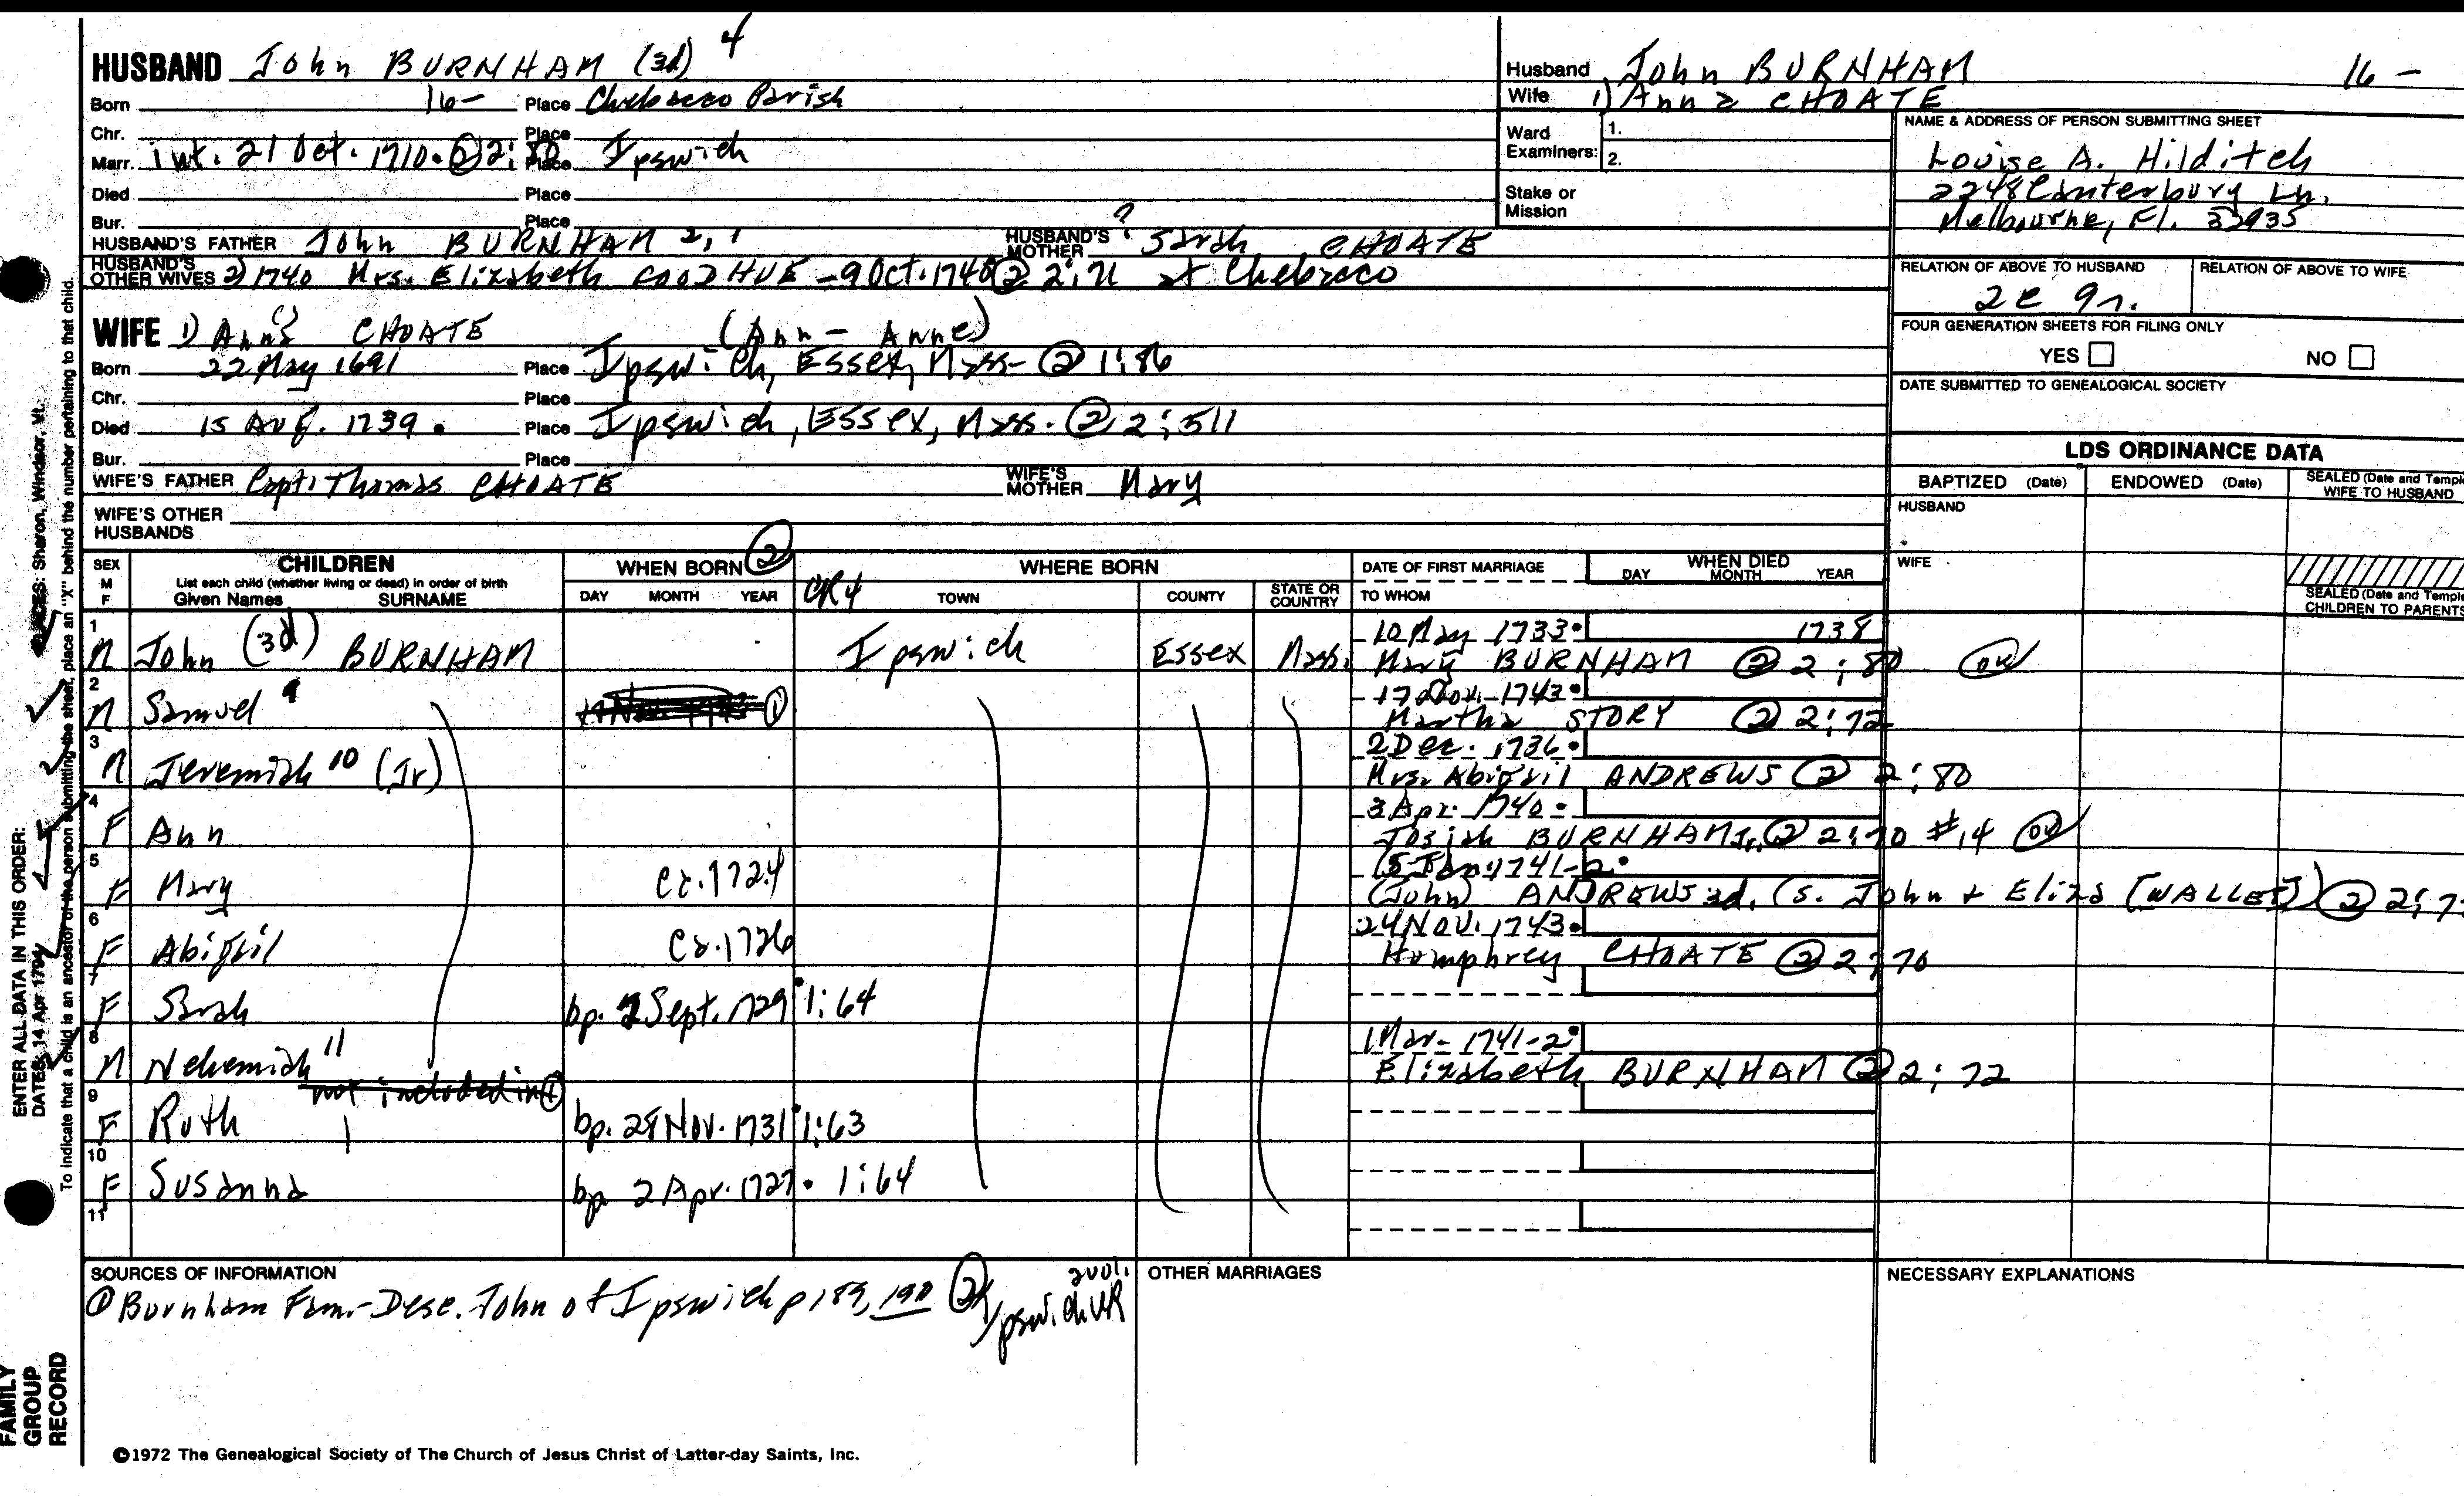 HUSBAND John BURNHAM (3d) 4
Born 16- Place Chebacco Parish
Chr. Place
Marr. int. 21 Oct. 1710. ② 2: 80 Place Ipswich
Died Place
Bur. Place
HUSBAND'S FATHER John BURNHAM 2, 1 HUSBAND'S MOTHER ? Sarah CHOATE
HUSBAND'S OTHER WIVES 2) 1740 Mrs. Elizabeth COOD HUE - 9 Oct. 1740 ② 2:71 at Chebacco
Husband John BURNHAM 16 -
Wife 1) Anna CHOATE
Ward Examiners: 1.
2.
Stake or Mission
NAME & ADDRESS OF PERSON SUBMITTING SHEET
Louise A. Hilditch
2248 Canterbury Ln.
Melbourne, Fl. 32935
RELATION OF ABOVE TO HUSBAND RELATION OF ABOVE TO WIFE
2c 9r.
FOUR GENERATION SHEETS FOR FILING ONLY
YES NO
DATE SUBMITTED TO GENEALOGICAL SOCIETY
WIFE 1) Anna CHOATE (Ann - Anne)
Born 22 May 1691 Place Ipswich, Essex, Mass- ② 1:86
Chr. Place
Died 15 Aug. 1739. Place Ipswich, Essex, Mass. ② 2:511
Bur. Place
WIFE'S FATHER Capt. Thomas CHOATE WIFE'S MOTHER Mary
WIFE'S OTHER HUSBANDS
LDS ORDINANCE DATA
BAPTIZED (Date) ENDOWED (Date) SEALED (Date and Templ
WIFE TO HUSBAND
HUSBAND
WIFE
SEALED (Date and Temple
CHILDREN TO PARENTS
SEX M F CHILDREN WHEN BORN ② WHERE BORN DATE OF FIRST MARRIAGE WHEN DIED
List each child (whether living or dead) in order of birth
Given Names SURNAME DAY MONTH YEAR CR4 TOWN COUNTY STATE OR COUNTRY TO WHOM DAY MONTH YEAR
1 10 May 1733. 1738
M John (3d) BURNHAM Ipswich Essex Mass. Mary BURNHAM ② 2:80 OK
2 17 Nov. 1743.
M Samuel 9 ① Martha STORY ② 2:72
3 2 Dec. 1736.
M Jeremiah 10 (Jr) Mrs. Abigail ANDREWS ② 2:80
4 3 Apr. 1740.
F Ann Josiah BURNHAM Jr. ② 2:70 #14 OK
5 15 Jan. 1741-2.
F Mary ca. 1724 (John) ANDREWS 3d. (s. John + Eliza [WALLES]) ② 2:7
6 24 Nov. 1743.
F Abigail ca. 1726 Humphrey CHOATE ② 2:70
7
F Sarah bp. 2 Sept. 1729. 1:64
8 1 Mar- 1741-2.
M Nehemiah 11 Elizabeth BURNHAM ② 2:72
not included in ①
9
F Ruth bp. 28 Nov. 1731. 1:63
10
F Susanna bp. 2 Apr. 1727. 1:64
11
SOURCES OF INFORMATION OTHER MARRIAGES NECESSARY EXPLANATIONS
① Burnham Fam.-Desc. John of Ipswich p 189, 190 ② Ipswich VR 2 vol.
©1972 The Genealogical Society of The Church of Jesus Christ of Latter-day Saints, Inc.
ENTER ALL DATA IN THIS ORDER:
DATES: 14 Apr 1794
PLACES: Sharon, Windsor, Vt.
To indicate that a child is an ancestor of the person submitting the sheet, place an "X" behind the number pertaining to that child.
FAMILY
GROUP
RECORD